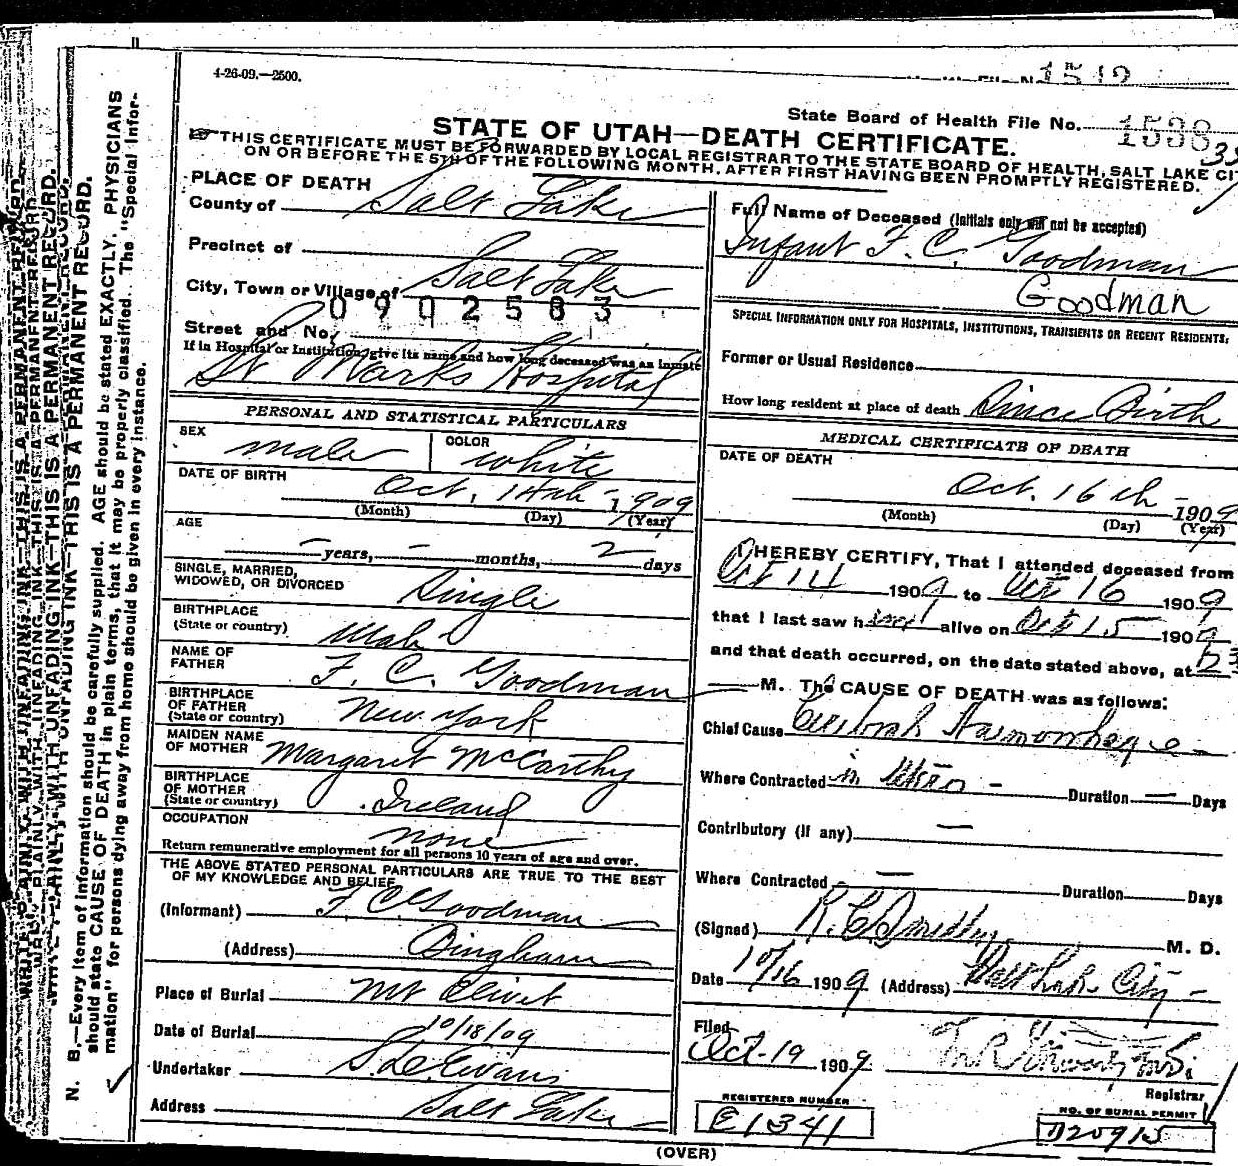 4-26-09.—2500.
1542
State Board of Health File No. 1538
35
STATE OF UTAH—DEATH CERTIFICATE.
THIS CERTIFICATE MUST BE FORWARDED BY LOCAL REGISTRAR TO THE STATE BOARD OF HEALTH, SALT LAKE CI
ON OR BEFORE THE 5TH OF THE FOLLOWING MONTH, AFTER FIRST HAVING BEEN PROMPTLY REGISTERED.
PLACE OF DEATH
County of Salt Lake
Precinct of
City, Town or Village of Salt Lake
0902583
Street and No.
If in Hospital or Institution, give its name and how long deceased was an inmate
St Marks Hospital
PERSONAL AND STATISTICAL PARTICULARS
SEX male
COLOR white
DATE OF BIRTH
Oct. 14th - 1909
(Month) (Day) (Year)
AGE
— years, — months, 2 days
SINGLE, MARRIED,
WIDOWED, OR DIVORCED Single
BIRTHPLACE
(State or country) Utah
NAME OF
FATHER F. C. Goodman
BIRTHPLACE
OF FATHER
(State or country) New York
MAIDEN NAME
OF MOTHER Margaret McCarthy
BIRTHPLACE
OF MOTHER
(State or country) Ireland
OCCUPATION
none
Return remunerative employment for all persons 10 years of age and over.
THE ABOVE STATED PERSONAL PARTICULARS ARE TRUE TO THE BEST
OF MY KNOWLEDGE AND BELIEF
(Informant) F. C. Goodman
(Address) Bingham
Place of Burial Mt Olivet
Date of Burial 10/18/09
Undertaker S. D. Evans
Address Salt Lake
Full Name of Deceased (Initials only will not be accepted)
Infant F. C. Goodman
Goodman
SPECIAL INFORMATION ONLY FOR HOSPITALS, INSTITUTIONS, TRANSIENTS OR RECENT RESIDENTS.
Former or Usual Residence
How long resident at place of death Since Birth
MEDICAL CERTIFICATE OF DEATH
DATE OF DEATH
Oct. 16th - 1909
(Month) (Day) (Year)
I HEREBY CERTIFY, That I attended deceased from
Oct 14 1909 to Oct 16 1909
that I last saw him alive on Oct 15 1909
and that death occurred, on the date stated above, at 12 3
— M. The CAUSE OF DEATH was as follows:
Chief Cause Cerebral Haemorrhage —
Where Contracted in Utero — Duration — Days
Contributory (if any) —
Where Contracted — Duration Days
(Signed) M. D.
Date 10/16 1909 (Address) Salt Lake City —
Filed
Oct-19 1909
Registrar
REGISTERED NUMBER
E1341
NO. OF BURIAL PERMIT
D20915
(OVER)
WRITE PLAINLY WITH UNFADING INK—THIS IS A PERMANENT RECORD.
N. B.—Every item of information should be carefully supplied. AGE should be stated EXACTLY. PHYSICIANS
should state CAUSE OF DEATH in plain terms, that it may be properly classified. The "Special Infor-
mation" for persons dying away from home should be given in every instance.